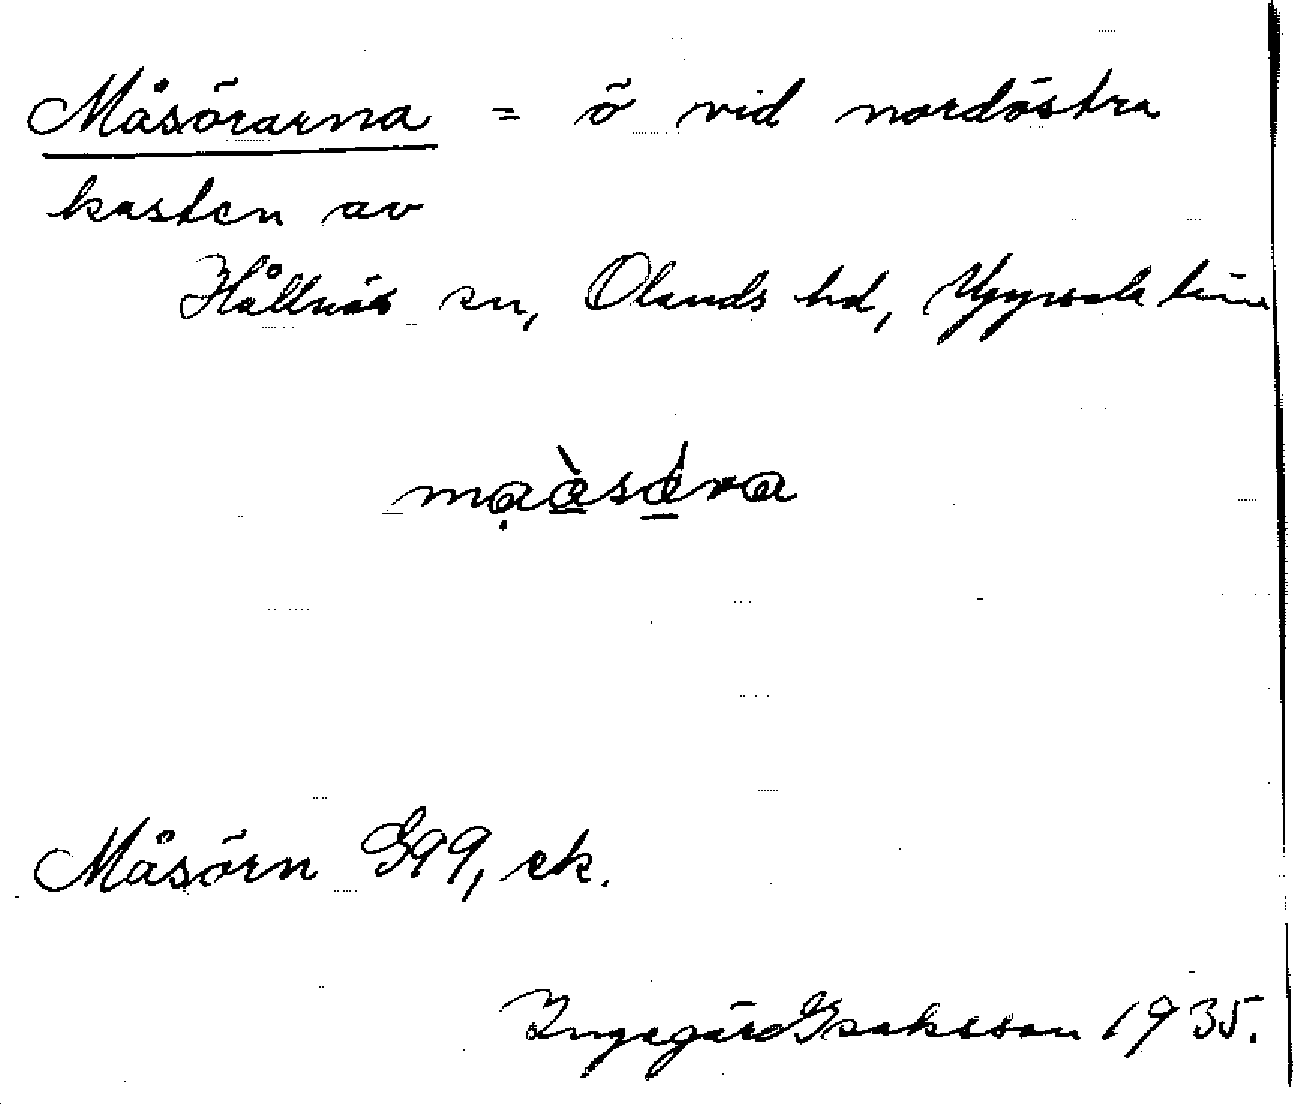 Måsörarna = ö vid nordöstra
kusten av
Hållnäs sn, Olands hd, Uppsala län
Måsörn G99, ek.
Ingegärd Isaksson 1935.